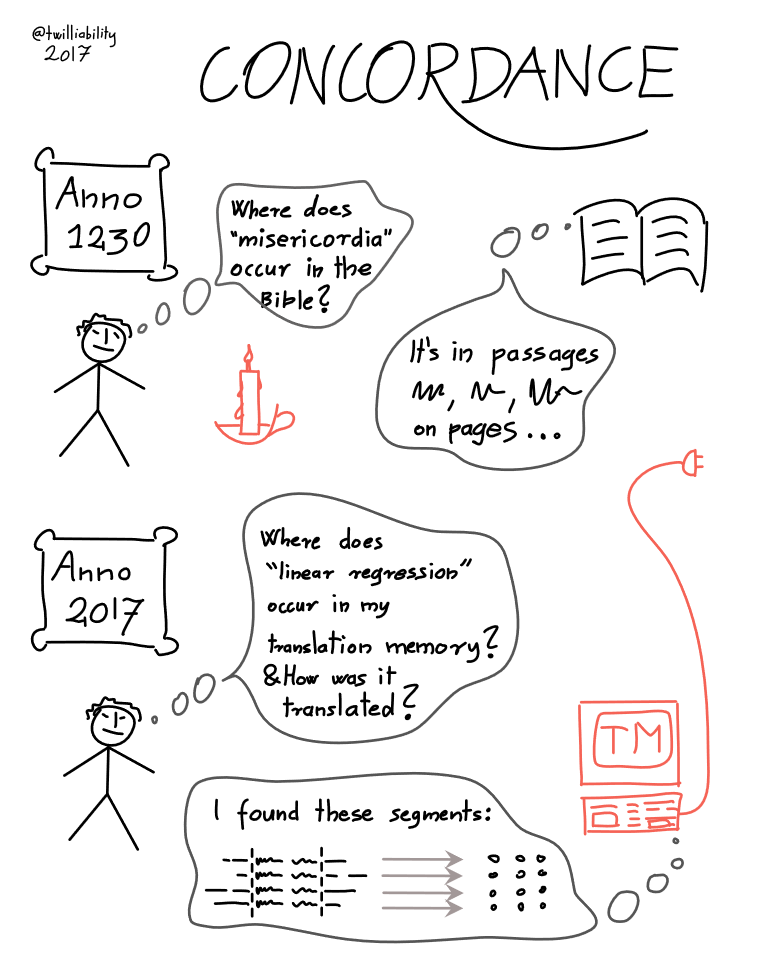 @twilliability
2017
CONCORDANCE
Anno
1230
Where does
"misericordia"
occur in the
Bible?
It's in passages
on pages...
Anno
2017
Where does
"linear regression"
occur in my
translation memory?
&How was it
translated?
TM
I found these segments: